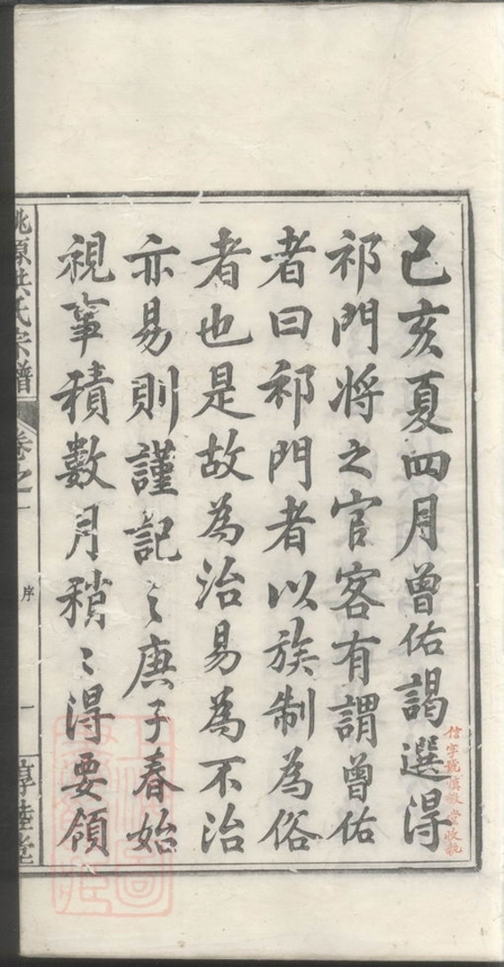 己亥夏四月曾佑謁選得
祁門將之官客有謂曾佑
者曰祁門者以族制為俗
者也是故為治易為不治
亦易則謹記之庚子春始
視事積數月稍〻得要領
桃源洪氏宗譜
卷之一
序
一
淳睦堂
信字號慎徽堂收執